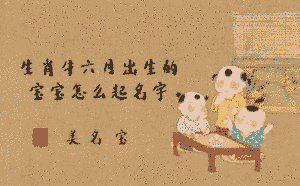 生肖牛六月出生的
宝宝怎么起名字
美名宝